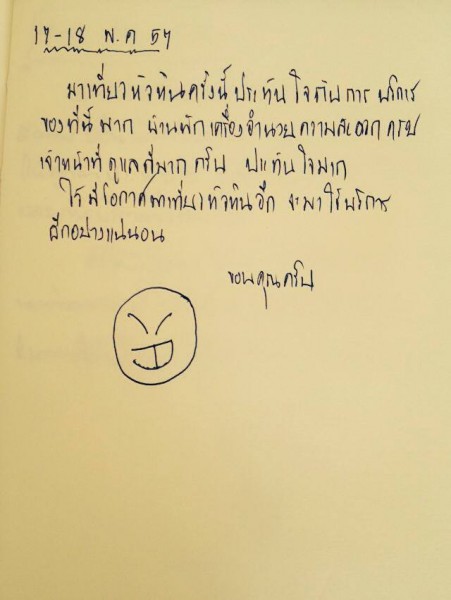 17-18 พ.ค 57
มาเที่ยวหัวหินครั้งนี้ ประทับใจกับการ บริการ
ของที่นี่ มาก บ้านพัก เครื่องอำนวย ความสะดวก ครบ
เจ้าหน้าที่ ดูแลดีมาก ครับ ประทับใจมาก
ไว้ มีโอกาศมาเที่ยวหัวหินอีก จะมาใช้บริการ
อีกอย่างแน่นอน
ขอบคุณครับ